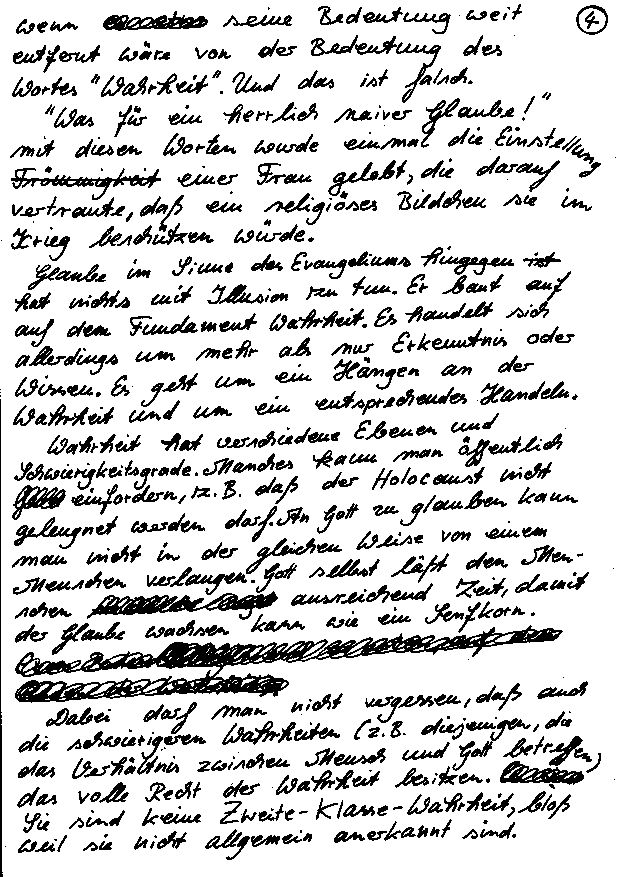 wenn seine Bedeutung weit
4
entfernt wäre von der Bedeutung des
Wortes "Wahrheit". Und das ist falsch.
"Was für ein herrlich naiver Glaube!"
mit diesen Worten wurde einmal die Einstellung
Frömmigkeit einer Frau gelobt, die darauf
vertraute, daß ein religiöses Bildchen sie im
Krieg beschützen würde.
Glaube im Sinne des Evangeliums hingegen ist
hat nichts mit Illusion zu tun. Er baut auf
auf dem Fundament Wahrheit. Es handelt sich
allerdings um mehr als nur Erkenntnis oder
Wissen. Es geht um ein Hängen an der
Wahrheit und um ein entsprechendes Handeln.
Wahrheit hat verschiedene Ebenen und
Schwierigkeitsgrade. Manches kann man öffentlich
einfordern, z.B. daß der Holocaust nicht
geleugnet werden darf. An Gott zu glauben kann
man nicht in der gleichen Weise von einem
Menschen verlangen. Gott selbst läßt den Men-
schen ausreichend Zeit, damit
der Glaube wachsen kann wie ein Senfkorn.
Dabei darf man nicht vergessen, daß auch
die schwierigeren Wahrheiten (z.B. diejenigen, die
das Verhältnis zwischen Mensch und Gott betreffen)
das volle Recht der Wahrheit besitzen.
Sie sind keine Zweite-Klasse-Wahrheit, bloß
weil sie nicht allgemein anerkannt sind.